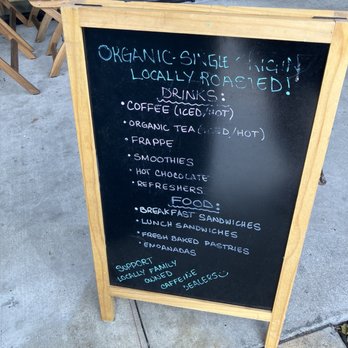 ORGANIC · SINGLE ORIGIN
LOCALLY ROASTED!
DRINKS:
• COFFEE (ICED/HOT)
• ORGANIC TEA (ICED/HOT)
• FRAPPE
• SMOOTHIES
• HOT CHOCOLATE
• REFRESHERS
FOOD:
• BREAKFAST SANDWICHES
• LUNCH SANDWICHES
• FRESH BAKED PASTRIES
• EMPANADAS
SUPPORT
LOCALLY FAMILY
OWNED
CAFFEINE
DEALERS☺